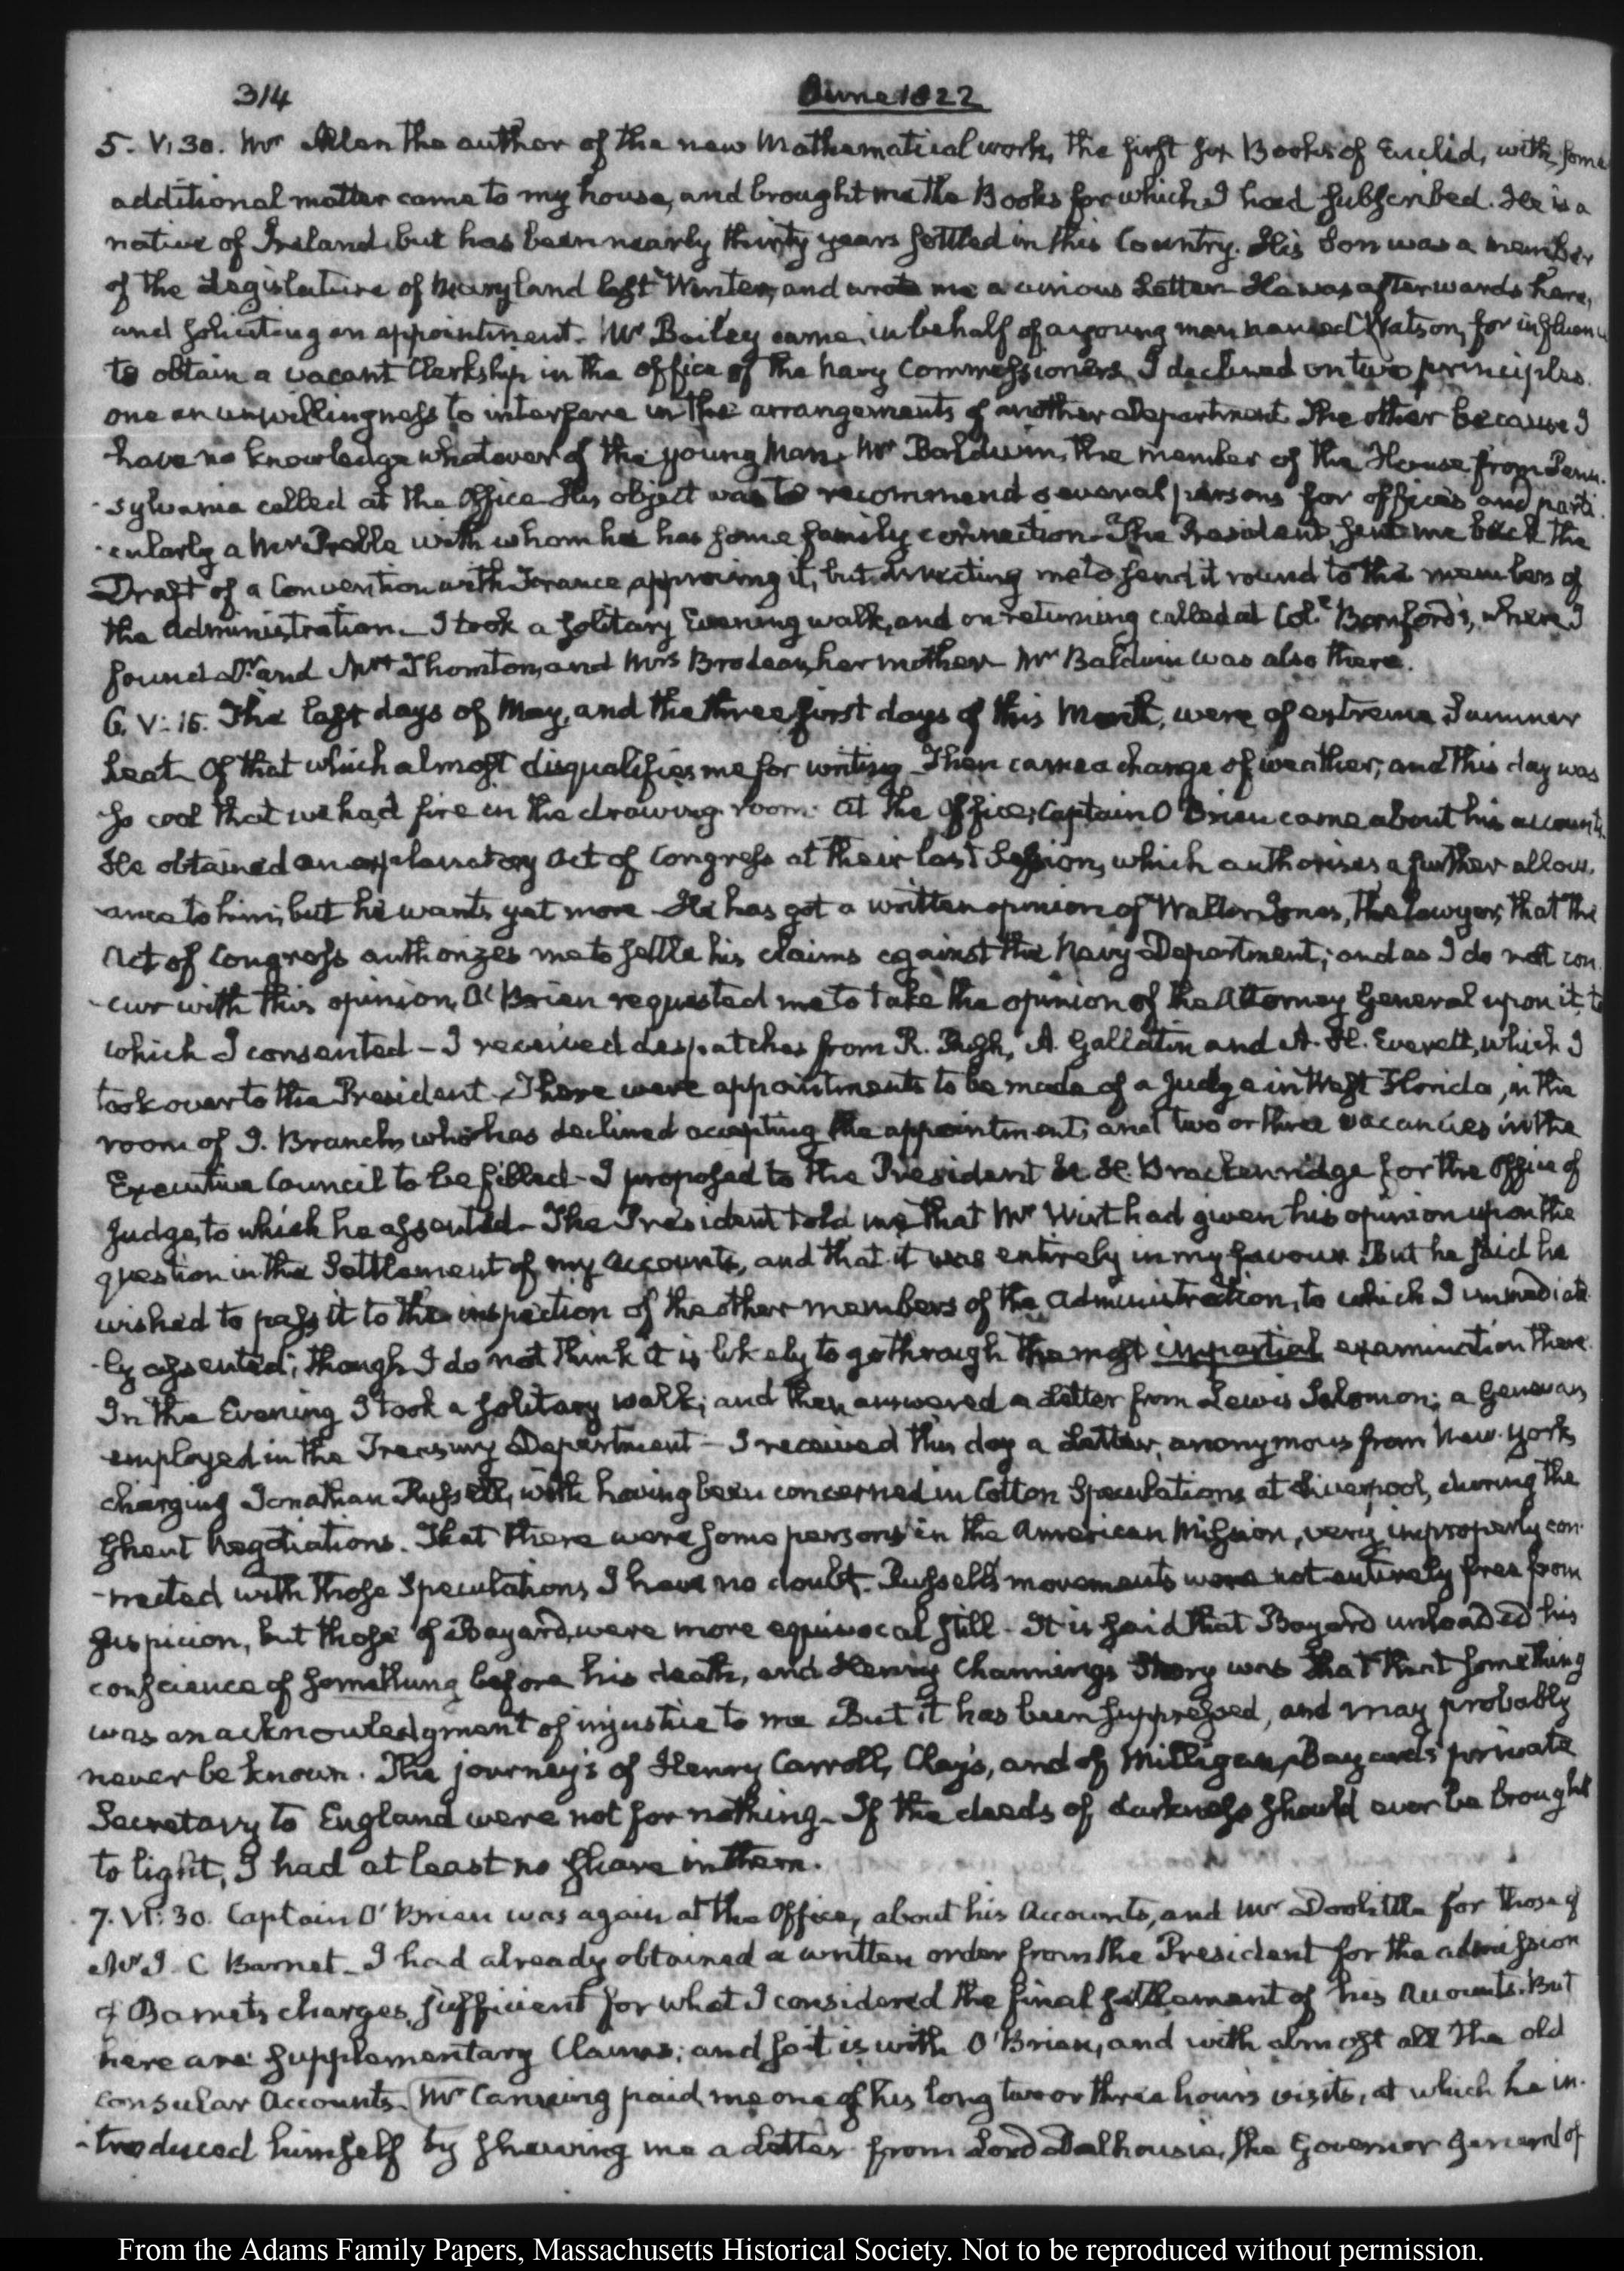 314
June 1822
5. V:30. Mr Allen the author of the new Mathematical work, the first six Books of Euclid, with some
additional matter came to my house, and brought me the Books for which I had subscribed. He is a
native of Ireland but has been nearly thirty years settled in this Country. His Son was a member
of the Legislature of Maryland last Winter, and wrote me a curious Letter— He was afterwards here,
and soliciting an appointment— Mr Bailey came, in behalf of a young man named Watson, for influence
to obtain a vacant Clerkship in the office of the Navy Commissioners I declined on two principles.
one an unwillingness to interfere in the arrangements of another Department The other because I
have no knowledge whatever of the young Man. Mr Baldwin, the member of the House from Penn-
-sylvania called at the Office His object was to recommend several persons for offices and parti-
-cularly a Mr Preble with whom he has some family connection— The President sent me back the
Draft of a Convention with France, approving it, but directing me to send it round to the members of
the administration— I took a solitary Evening walk, and on returning called at Col.l Bomford's, where I
found Dr and Mrs Thornton, and Mrs Brodeau, her mother— Mr Baldwin was also there.
6. V:15. The last days of May, and the three first days of this Month, were of extreme Summer
heat— Of that which almost disqualifies me for writing— Then came a change of weather; and this day was
so cool that we had fire in the drawing room. At the Office, Captain O'Brien came about his accounts.
He obtained an explanatory Act of Congress at their last Session, which authorises a further allow-
-ance to him; but he wants yet more— He has got a written opinion of Walter Jones, the lawyer, that the
Act of Congress authorizes me to settle his claims against the Navy Department; and as I do not con-
-cur with this opinion, O'Brien requested me to take the opinion of the Attorney General upon it, to
which I consented— I received despatches from R. Rush, A. Gallatin and A. H. Everett, which I
took over to the President— There were appointments to be made of a Judge in West Florida, in the
room of J. Branch, who has declined accepting the appointment; and two or three vacancies in the
Executive Council to be filled— I proposed to the President H. H. Brackenridge for the Office of
Judge, to which he assented— The President told me that Mr Wirt had given his opinion upon the
question in the Settlement of my Accounts, and that it was entirely in my favour. But he said he
wished to pass it to the inspection of the other members of the Administration, to which I immediate-
-ly assented; though I do not think it is likely to go through the most impartial examination there.
In the Evening I took a solitary walk; and then answered a Letter from Lewis Salomon; a Genevan
employed in the Treasury Department— I received this day a Letter, anonymous from New-York,
charging Jonathan Russell, with having been concerned in Cotton Speculations at Liverpool, during the
Ghent Negotiations. That there were some persons in the American Mission, very improperly con-
-nected with those Speculations I have no doubt. Russell's movements were not entirely free from
suspicion, but those of Bayard, were more equivocal still— It is said that Bayard unloaded his
conscience of something before his death, and Henry Channing's Story was that that something
was an acknowledgment of injustice to me But it has been suppressed, and may probably
never be known. The journey's of Henry Carroll, Clay's, and of Milligan, Bayard's private
Secretary to England were not for nothing— If the deeds of darkness should ever be brought
to light, I had at least no share in them.
7. VI:30. Captain O'Brien was again at the Office, about his Accounts, and Mr Doolittle for those of
Mr I. C. Barnet— I had already obtained a written order from the President for the admission
of Barnet's charges, sufficient for what I considered the final settlement of his Accounts. But
here are supplementary Claims; and so it is with O'Brien, and with almost all the old
consular Accounts. Mr Canning paid me one of his long two or three hours visits, at which he in-
-troduced himself by shewing me a Letter from Lord Dalhousie, the Governor General of
From the Adams Family Papers, Massachusetts Historical Society. Not to be reproduced without permission.